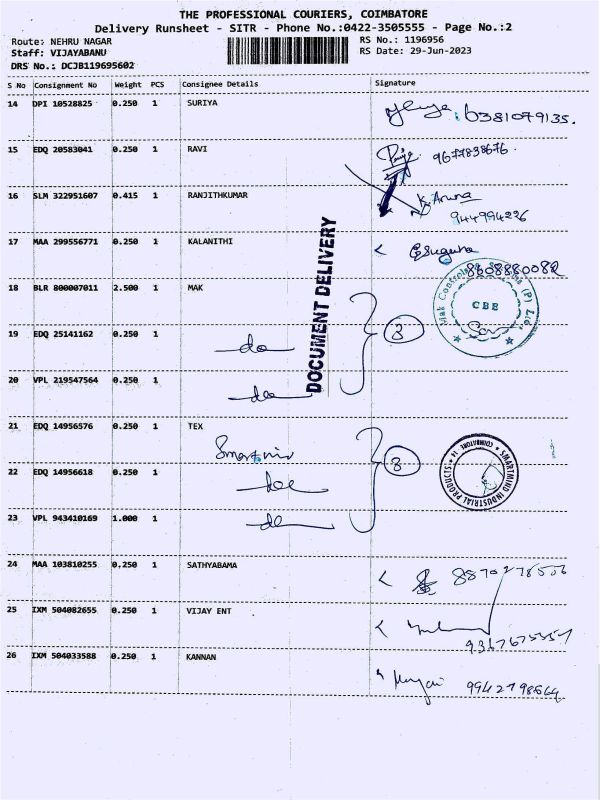 THE PROFESSIONAL COURIERS, COIMBATORE
Delivery Runsheet - SITR - Phone No.:0422-3505555 - Page No.:2
Route: NEHRU NAGAR RS No.: 1196956
Staff: VIJAYABANU RS Date: 29-Jun-2023
DRS No.: DCJB119695602
S No Consignment No Weight PCS Consignee Details Signature
14 DPI 10528825 0.250 1 SURIYA 6381079135.
15 EDQ 20583041 0.250 1 RAVI 9677838676.
16 SLM 322951607 0.415 1 RANJITHKUMAR K. Aruna
944994226
17 MAA 299556771 0.250 1 KALANITHI Esuguna
8608880082
18 BLR 800007011 2.500 1 MAK
DOCUMENT DELIVERY
Mak Controls (P) Ltd.
CBE
19 EDQ 25141162 0.250 1 do 3
20 VPL 219547564 0.250 1 do
21 EDQ 14956576 0.250 1 TEX
Smartmin 3
SMARTMIND INDUSTRIAL PRODUCTS COIMBATORE
22 EDQ 14956618 0.250 1 do
23 VPL 943410169 1.000 1 do
24 MAA 103810255 0.250 1 SATHYABAMA 8870278506
25 IXM 504082655 0.250 1 VIJAY ENT
9367675357
26 IXM 504033588 0.250 1 KANNAN 9942798664